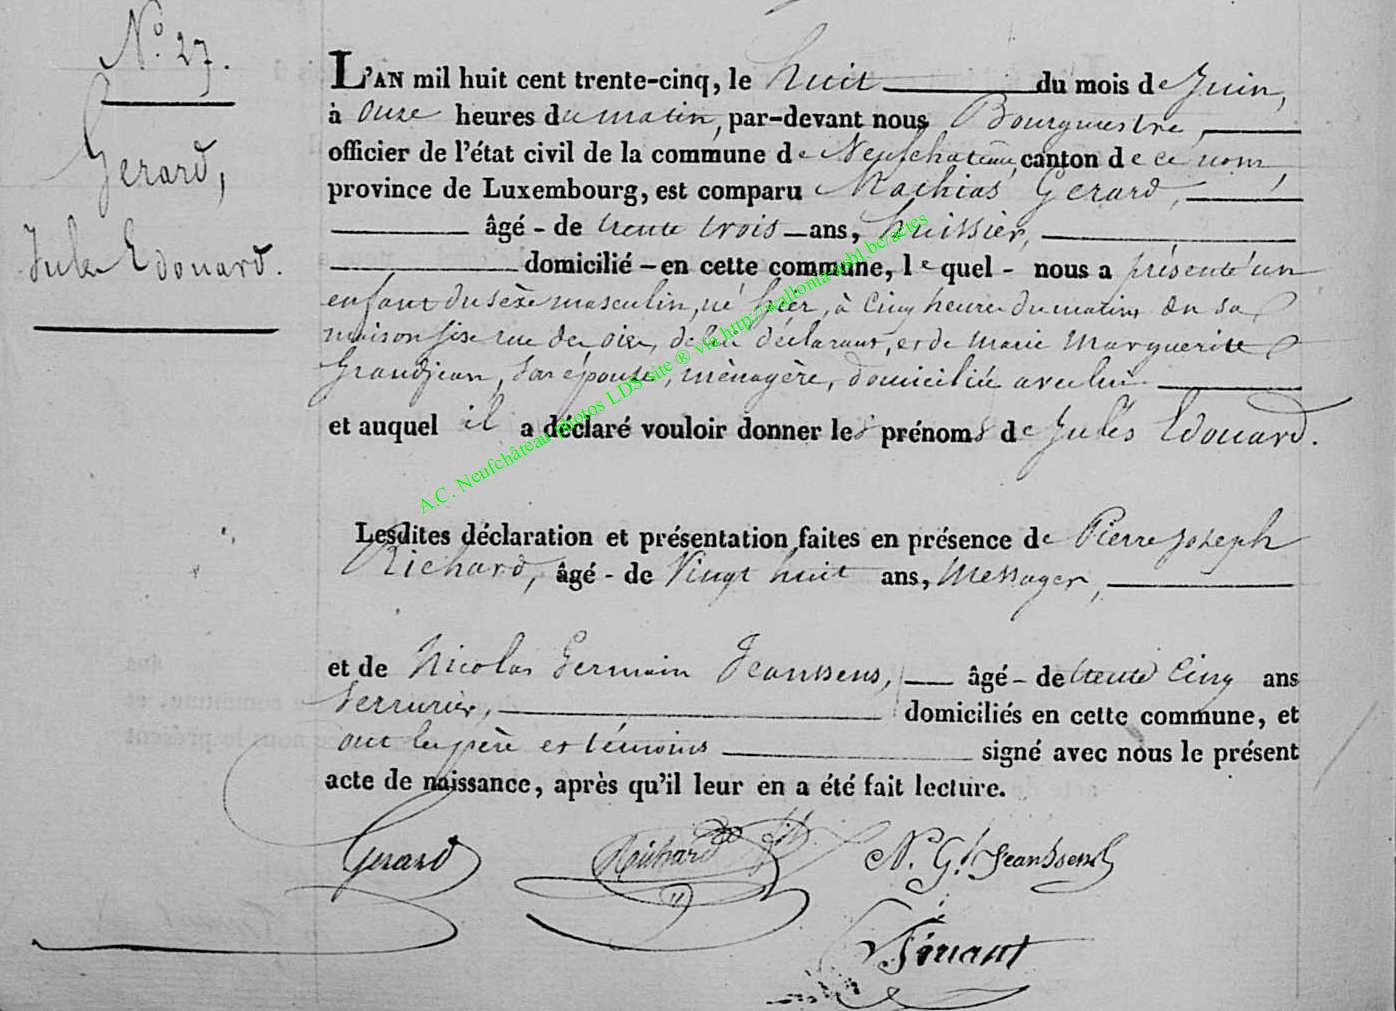 N.º 27.
Gerard,
Jules Edouard.
L'AN mil huit cent trente-cinq, le huit du mois de Juin,
à onze heures du matin, par-devant nous Bourgmestre,
officier de l'état civil de la commune de Neufchateau, canton de ce nom,
province de Luxembourg, est comparu Mathias Gerard,
âgé - de trente trois ans, huissier,
domicilié - en cette commune, le quel - nous a présenté un
enfant du sèxe masculin, né hier, à cinq heures du matin, en sa
maison sise rue de, de lui déclarant, et de Marie Marguerite
Grandjean, son épouse, ménagère, domiciliée avec lui
et auquel il a déclaré vouloir donner les prénoms de Jules Edouard.
Lesdites déclaration et présentation faites en présence de Pierre Joseph
Richard, âgé - de Vingt huit ans, Messager,
et de Nicolas Germain Jeanssens, âgé - de trente cinq ans
Serrurier, domiciliés en cette commune, et
ont les père et témoins signé avec nous le présent
acte de naissance, après qu'il leur en a été fait lecture.
Gerard Richard N. G. Jeanssens
A.C. Neufchâteau photos LDS site ® via http://wallonia.asbl.be/actes